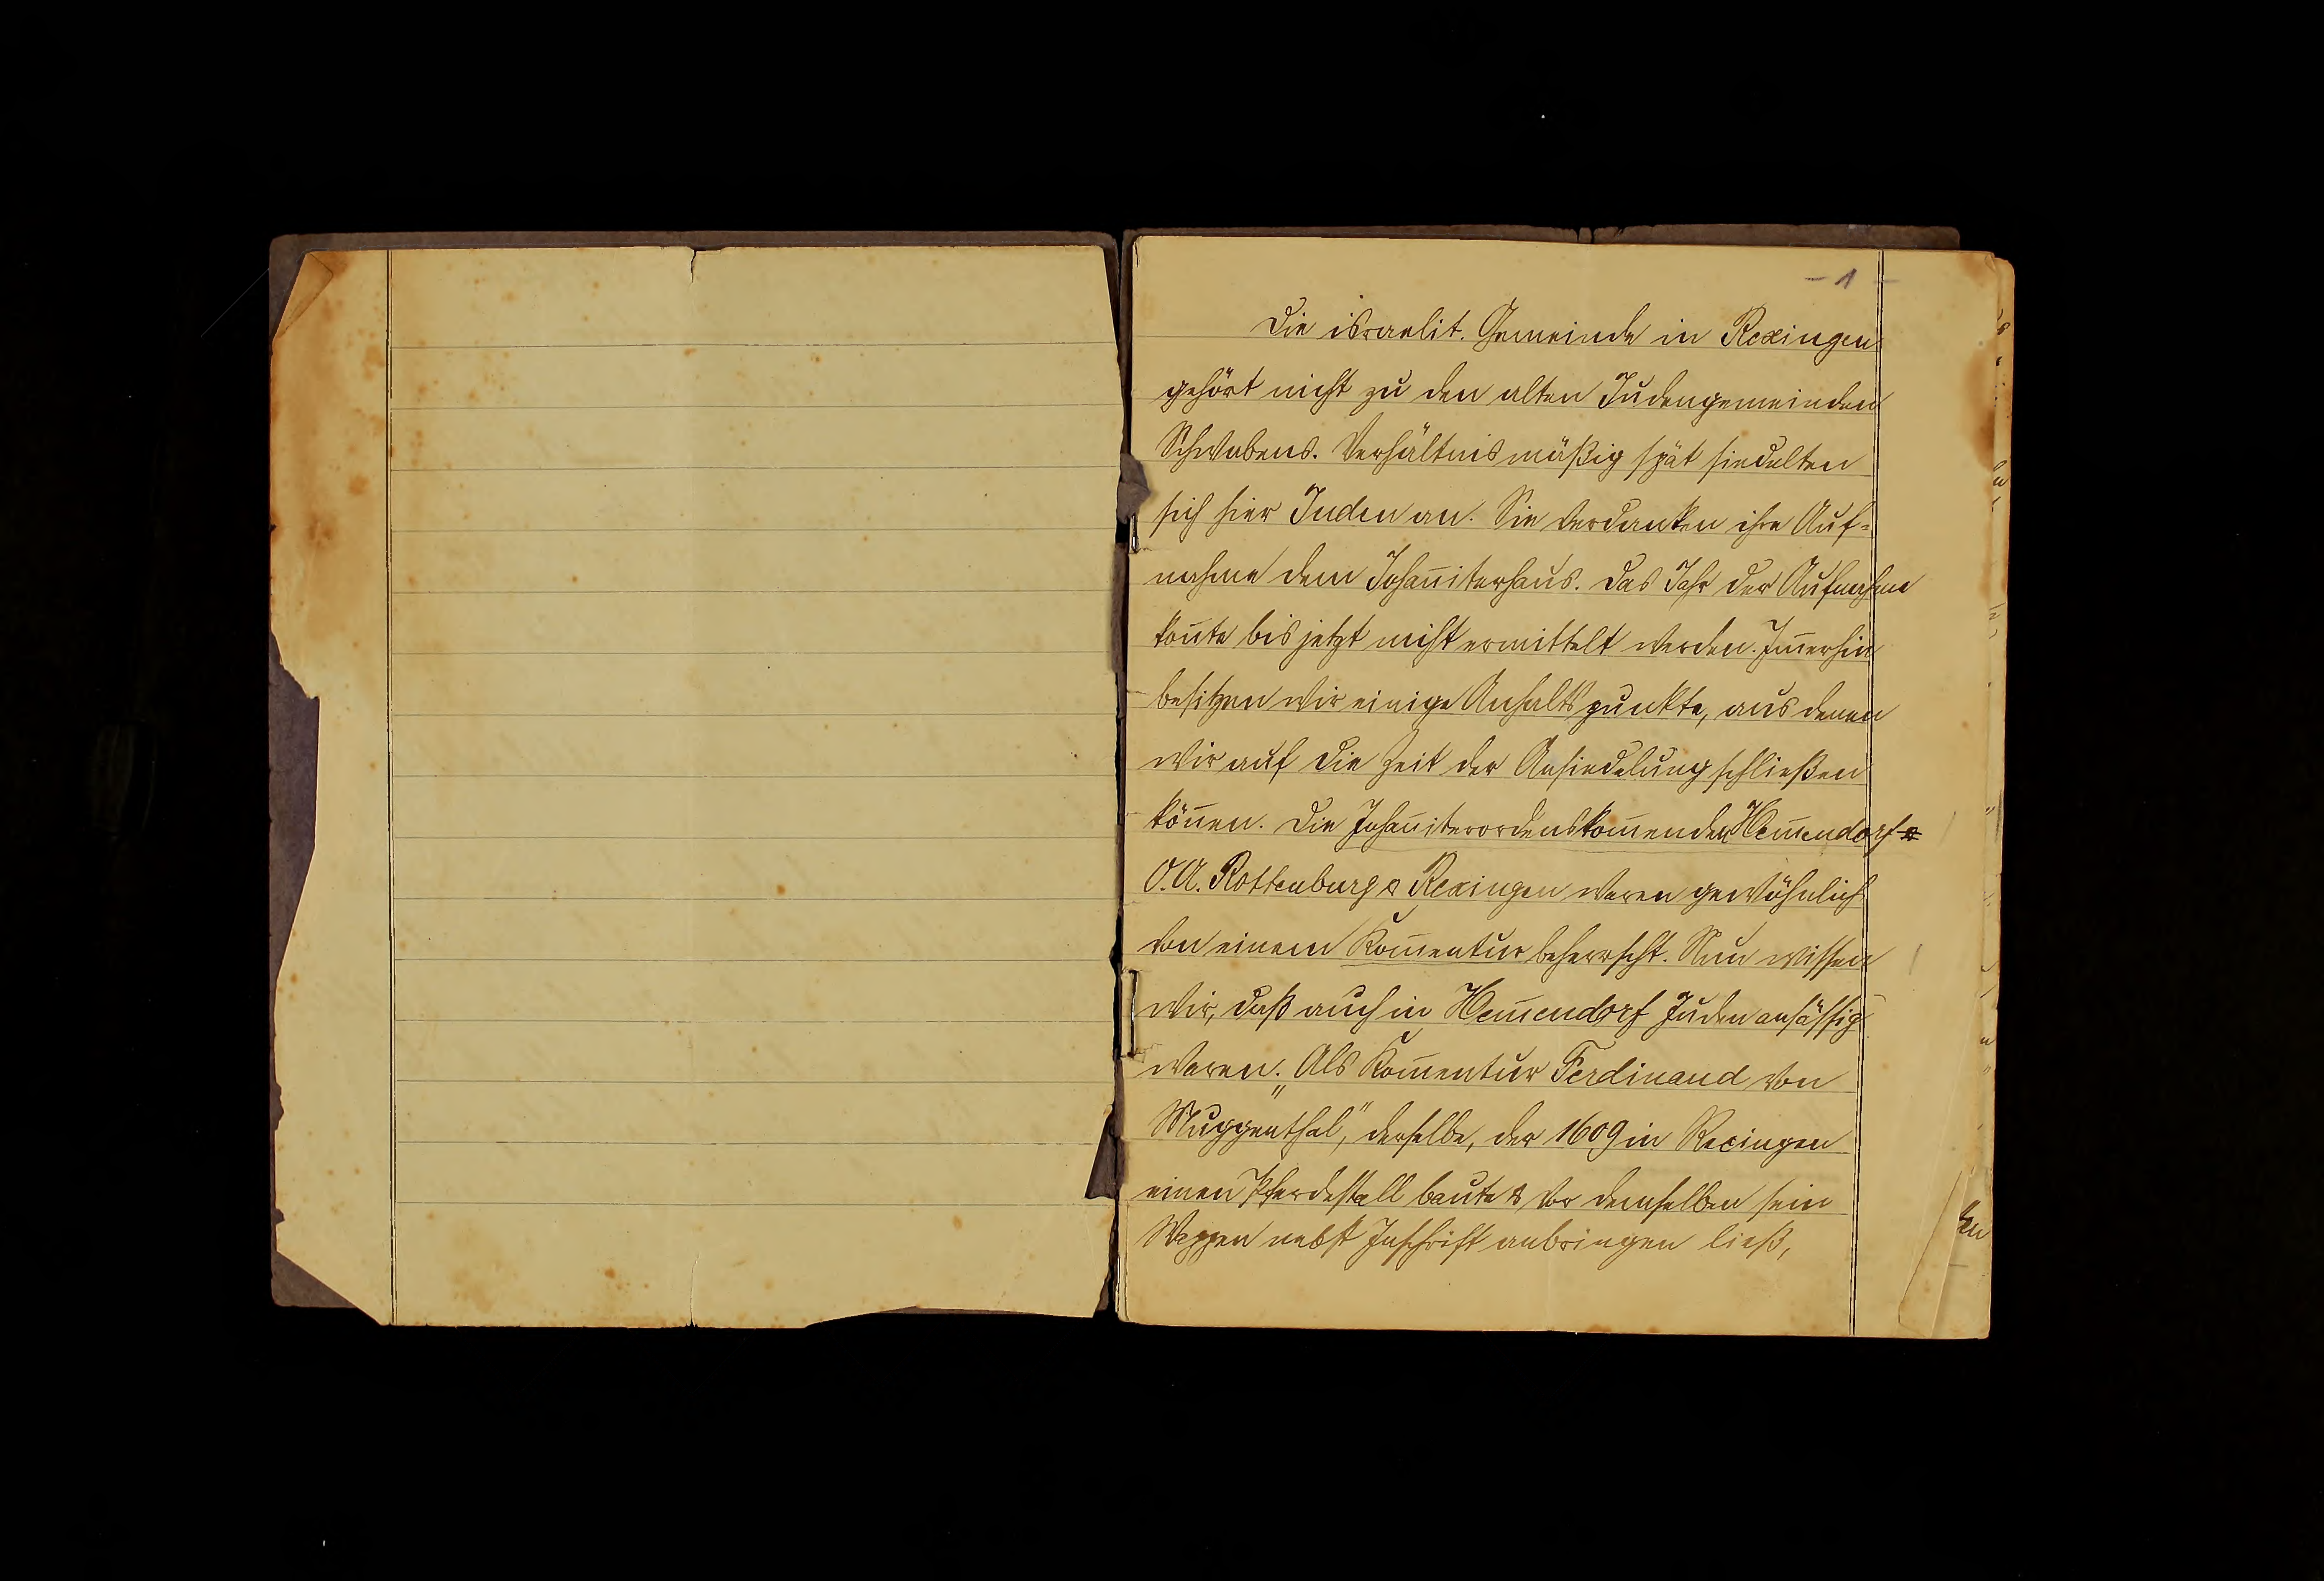 - 1 -
Die israelit. Gemeinde in Rexingen
gehört nicht zu den alten Judengemeinden
Schwabens. Verhältnismäßig spät siedelten
sich hier Juden an. Sie verdanken ihre Auf=
nahme dem Johan̄iterhaus. Das Jahr der Aufnahme
kon̄te bis jetzt nicht ermittelt werden. Im̄erhin
besitzen wir einige Anhaltspunkte, aus denen
wir auf die Zeit der Ansiedelung schließen
kön̄en. Die Johan̄iterordenskom̄enden Hem̄endorf
O.A. Rottenburg & Rexingen waren gewöhnlich
von einem Kom̄entur beherrscht. Nun wissen
wir, daß auch in Hem̄endorf Juden ansässig
waren. „Als Kom̄entur Ferdinand von
Muggenthal“, derselbe, der 1609 in Rexingen
einen Pferdestall baute & vor demselben sein
Wappen nebst Inschrift anbringen ließ,